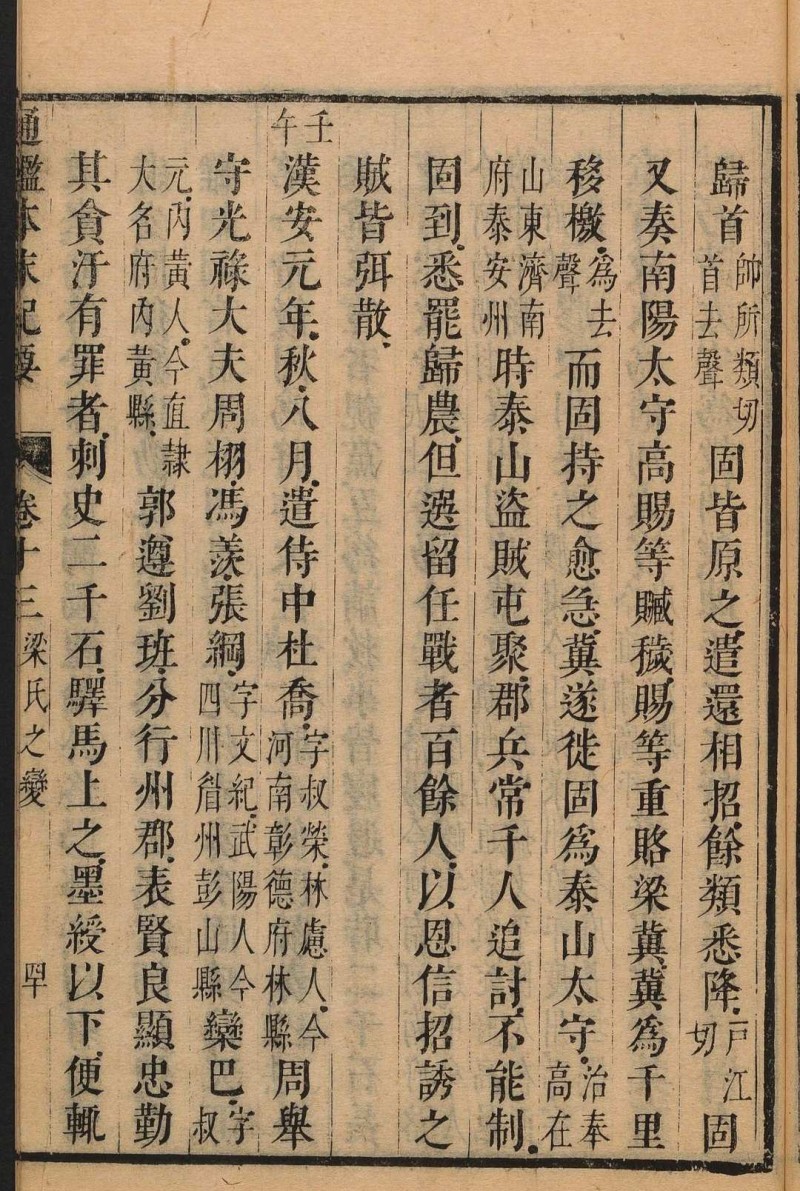 歸首帥所類切首去聲固皆原之遣還相招餘類悉降戸江切固
又奏南陽太守高賜等贓穢賜等重賂梁冀冀為千里
移檄為去聲而固持之愈急冀遂徙固為泰山太守治奉高在
山東濟南府泰安州時泰山盜賊屯聚郡兵常千人追討不能制
固到悉罷歸農但選留任戰者百餘人以恩信招誘之
賊皆弭散
壬午漢安元年秋八月遣侍中杜喬字叔榮林慮人今河南彰德府林縣周舉
守光祿大夫周栩馮羨張綱字文紀武陽人今四川眉州彭山縣欒巴字叔
元內黃人今直隸大名府內黃縣郭遵劉班分行州郡表賢良顯忠勤
其貪汙有罪者刺史二千石驛馬上之墨綬以下便輒
通鑑本末紀要 卷十三 梁氏之變 四